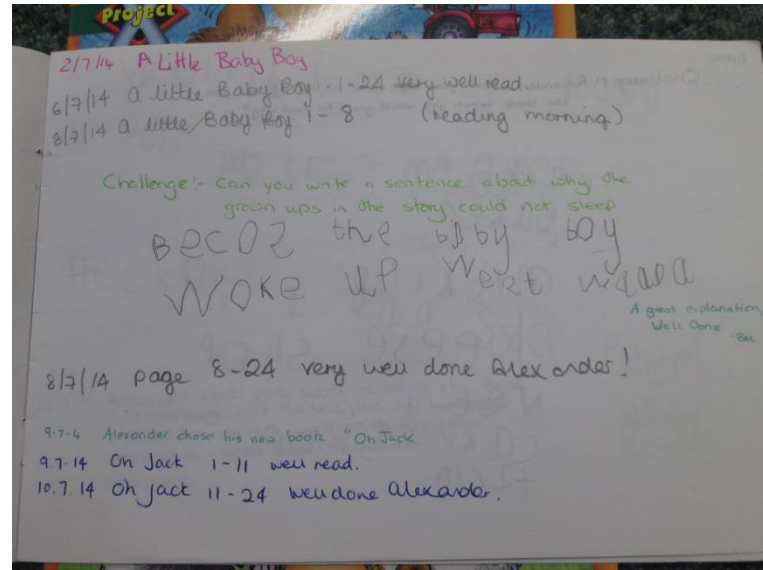 Project
X
2/7/14 A Little Baby Boy
6/7/14 a little Baby Boy - 1-24 very well read.
8/7/14 a little Baby Boy 1-8 (reading morning)
Challenge:- Can you write a sentence about why the
grown ups in the story could not sleep
Becoz the baby boy
Woke up
A great explanation,
Well Done
8/7/14 page 8-24 very well done Alexander!
9-7-4 Alexander chose his new book "Oh Jack
9.7.14 Oh Jack 1-11 well read.
10.7.14 Oh Jack 11-24 well done Alexander.